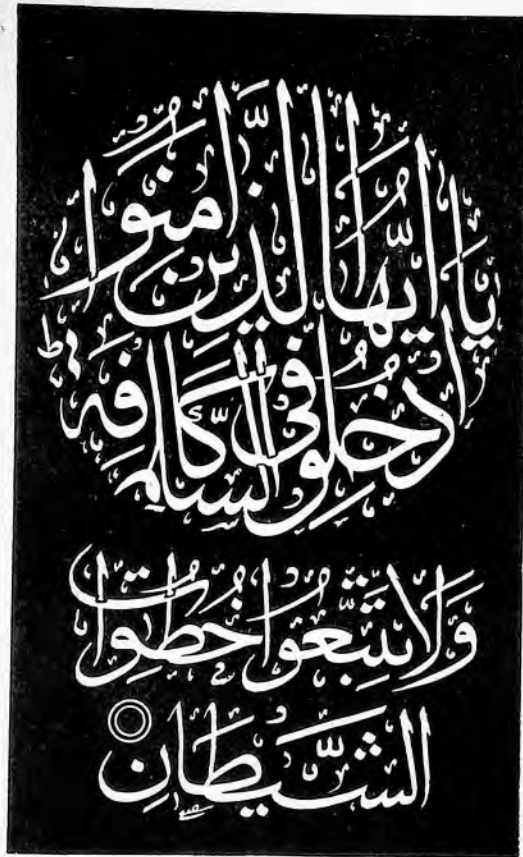 يَا أَيُّهَا الَّذِينَ آمَنُوا
ادْخُلُوا فِي السِّلْمِ كَافَّةً
وَلَا تَتَّبِعُوا خُطُوَاتِ
الشَّيْطَانِ